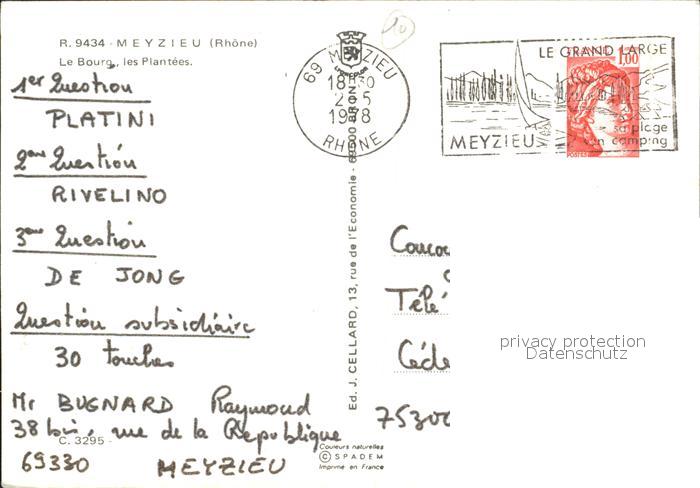 R. 9434 - MEYZIEU (Rhône)
Le Bourg, les Plantées.
1er Question
PLATINI
2eme Question
RIVELINO
3eme Question
DE JONG
Question subsidiaire
30 touches
Mr BUGNARD Raymond
38 bis, rue de la République
C. 3295 -
69330 MEYZIEU
Ed. J. CELLARD, 13, rue de l'Economie - 69500 BRON
Couleurs naturelles
© SPADEM
Imprimé en France
69 MEYZIEU
18H30
2-5
1978
RHONE
LE GRAND LARGE
MEYZIEU
sa plage
son camping
1,00
POSTES
Concou
Télé
Céde
75300
privacy protection
Datenschutz
10